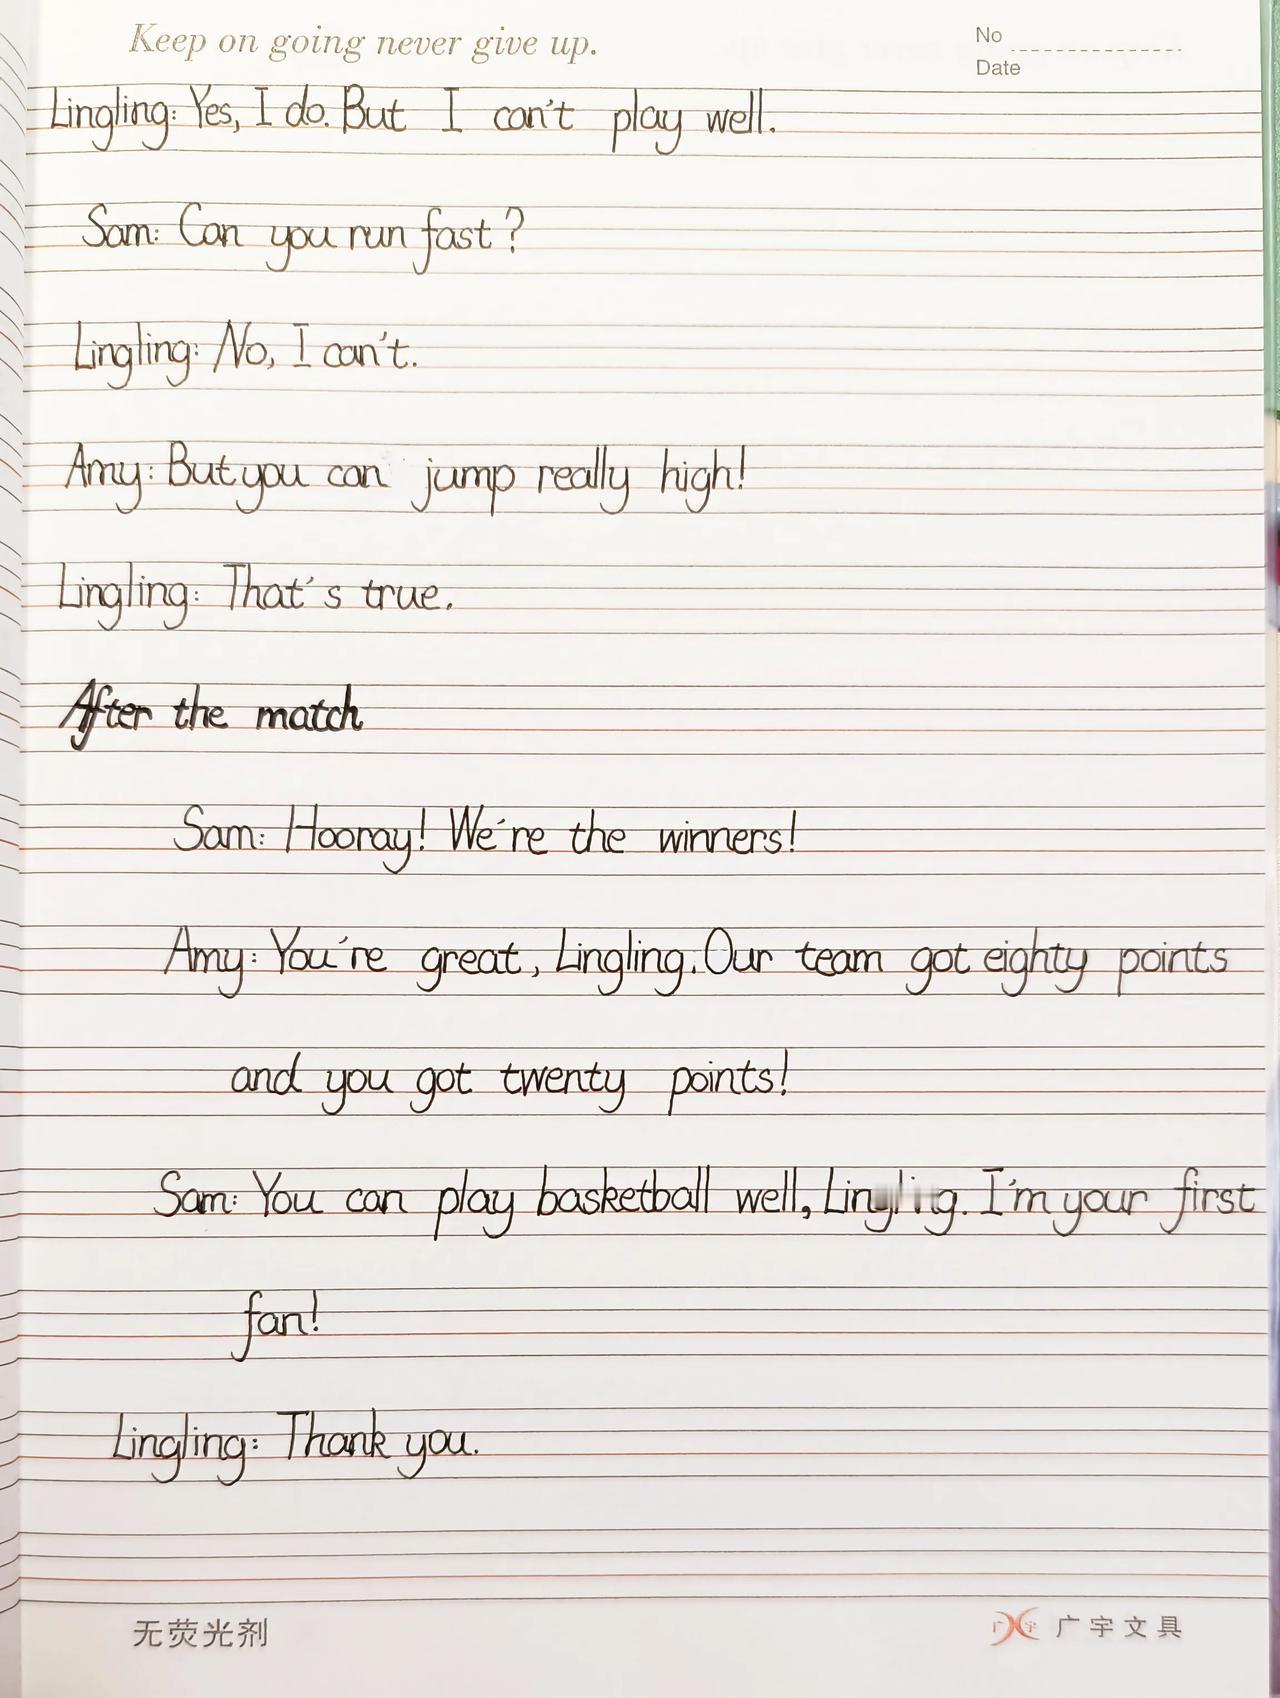 Keep on going never give up.
No
Date
Lingling: Yes, I do. But I can't play well.
Sam: Can you run fast?
Lingling: No, I can't.
Amy: But you can jump really high!
Lingling: That's true.
After the match
Sam: Hooray! We're the winners!
Amy: You're great, Lingling. Our team got eighty points
and you got twenty points!
Sam: You can play basketball well, I'm your first
fan!
Lingling: Thank you.
无荧光剂
广宇文具